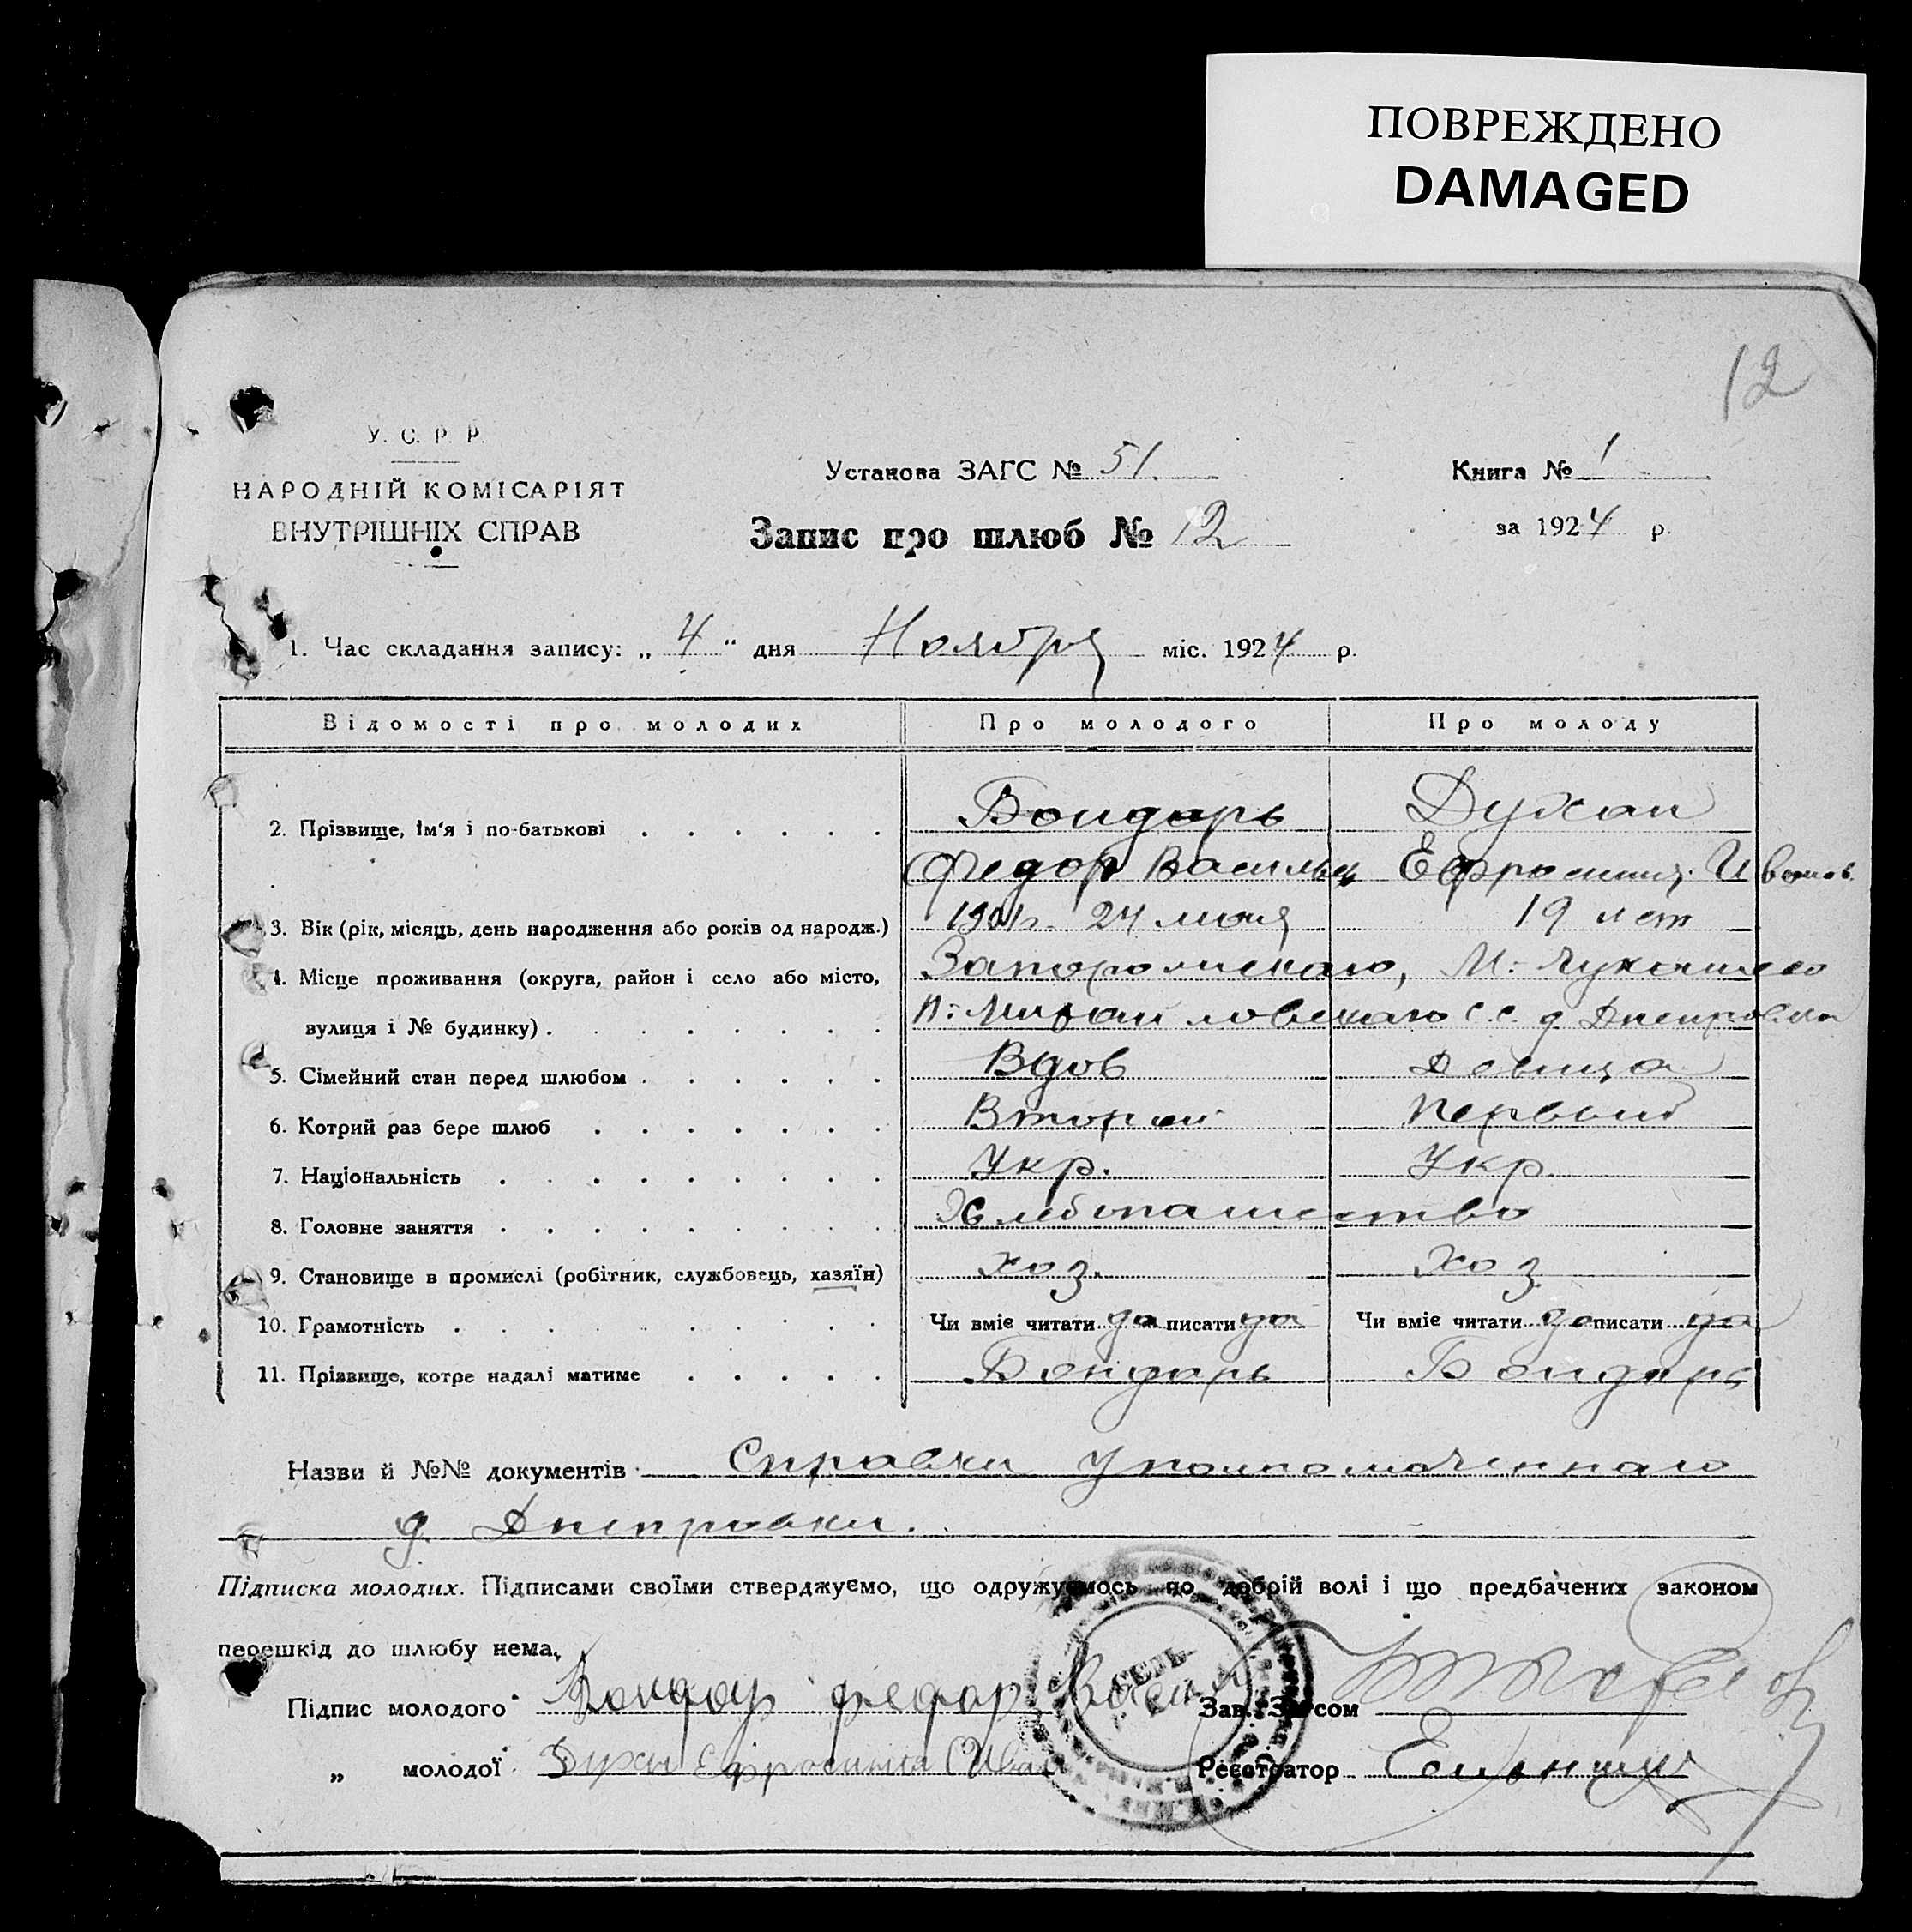 ПОВРЕЖДЕНО
DAMAGED
12
У. С. Р. Р.
НАРОДНІЙ КОМІСАРІЯТ
ВНУТРІШНІХ СПРАВ
Установа ЗАГС № 51.
Книга № 1
Запис про шлюб № 12
за 1924 р.
1. Час складання запису: „ 4 “ дня Ноября міс. 1924 р.
Відомості про молодих Про молодого Про молоду
2. Прізвище, ім'я і по-батькові Бондарь Духан
Федор Васильев Ефросиния Иванов.
3. Вік (рік, місяць, день народження або років од народж.) 1901 г. 24 19 лет
4. Місце проживання (округа, район і село або місто, Запорожскаго,
вулиця і № будинку) Михайловскаго с.с. д Днепровка
5. Сімейний стан перед шлюбом Вдов Девица
6. Котрий раз бере шлюб Вторый Первый
7. Національність Укр. Укр.
8. Головне заняття Хлебопашество
9. Становище в промислі (робітник, службовець, хазяїн) хоз. хоз
10. Грамотність Чи вміє читати да писати да Чи вміє читати да писати да
11. Прізвище, котре надалі матиме Бондарь Бондарь
Назви й №№ документів Справки Уполномоченнаго
д. Днепровки.
Підписка молодих. Підписами своїми стверджуємо, що одружуємось по добрій волі і що предбачених законом
перешкід до шлюбу нема.
Підпис молодого Бондарь Федор Васил
Зав. Загсом
„ молодої Духан Ефросиния Иван
Реєстратор